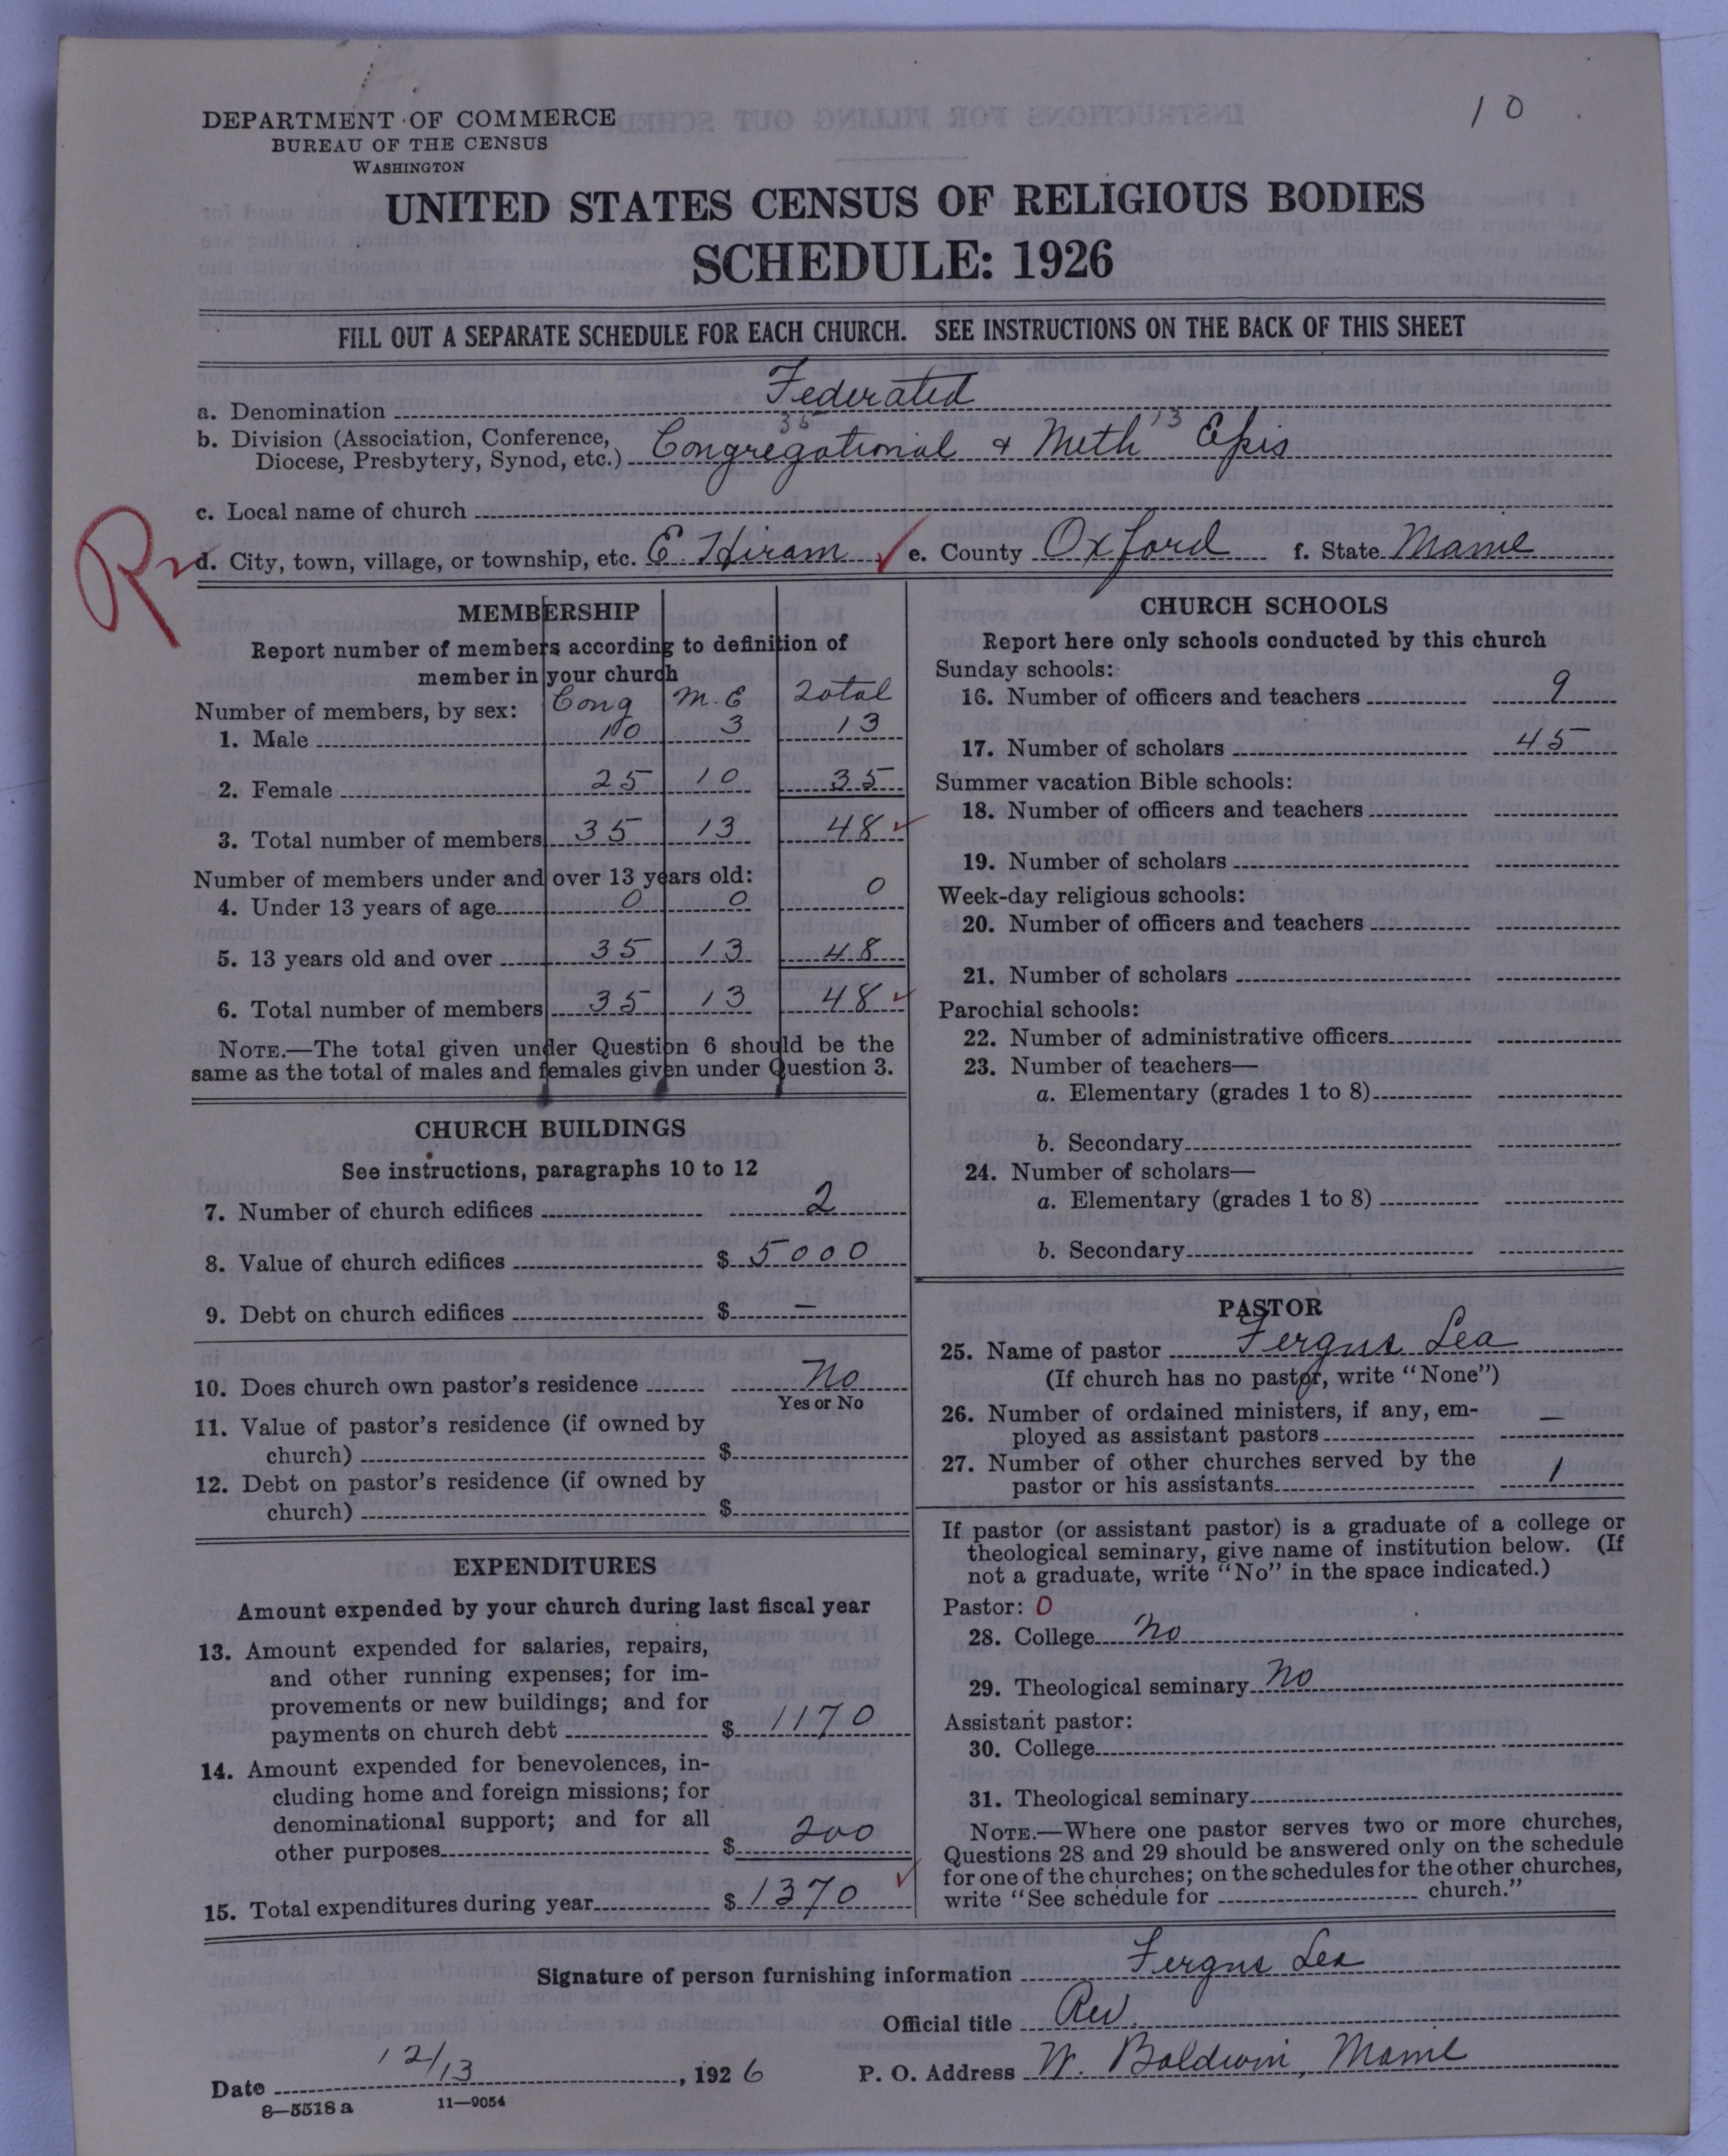 10
DEPARTMENT OF COMMERCE
BUREAU OF THE CENSUS
WASHINGTON
UNITED STATES CENSUS OF RELIGIOUS BODIES
SCHEDULE: 1926
FILL OUT A SEPARATE SCHEDULE FOR EACH CHURCH. SEE INSTRUCTIONS ON THE BACK OF THIS SHEET
a. Denomination Federated
35 13
b. Division (Association, Conference, Diocese, Presbytery, Synod, etc.) Congregational & Meth Epis
c. Local name of church
d. City, town, village, or township, etc. E. Hiram e. County Oxford f. State Maine
MEMBERSHIP
Report number of members according to definition of
member in your church
Number of members, by sex: Cong M.E Total
1. Male 10 3 13
2. Female 25 10 35
3. Total number of members 35 13 48
Number of members under and over 13 years old:
4. Under 13 years of age 0 0 0
5. 13 years old and over 35 13 48
6. Total number of members 35 13 48
NOTE.—The total given under Question 6 should be the
same as the total of males and females given under Question 3.
CHURCH BUILDINGS
See instructions, paragraphs 10 to 12
7. Number of church edifices 2
8. Value of church edifices $ 5000
9. Debt on church edifices $ —
10. Does church own pastor's residence No
Yes or No
11. Value of pastor's residence (if owned by
church) $
12. Debt on pastor's residence (if owned by
church) $
EXPENDITURES
Amount expended by your church during last fiscal year
13. Amount expended for salaries, repairs,
and other running expenses; for im-
provements or new buildings; and for
payments on church debt $ 1170
14. Amount expended for benevolences, in-
cluding home and foreign missions; for
denominational support; and for all
other purposes $ 200
15. Total expenditures during year $ 1370
CHURCH SCHOOLS
Report here only schools conducted by this church
Sunday schools:
16. Number of officers and teachers 9
17. Number of scholars 45
Summer vacation Bible schools:
18. Number of officers and teachers
19. Number of scholars
Week-day religious schools:
20. Number of officers and teachers
21. Number of scholars
Parochial schools:
22. Number of administrative officers
23. Number of teachers—
a. Elementary (grades 1 to 8)
b. Secondary
24. Number of scholars—
a. Elementary (grades 1 to 8)
b. Secondary
PASTOR
25. Name of pastor Fergus Lea
(If church has no pastor, write "None")
26. Number of ordained ministers, if any, em-
ployed as assistant pastors —
27. Number of other churches served by the
pastor or his assistants 1
If pastor (or assistant pastor) is a graduate of a college or
theological seminary, give name of institution below. (If
not a graduate, write "No" in the space indicated.)
Pastor: 0
28. College No
29. Theological seminary No
Assistant pastor:
30. College
31. Theological seminary
NOTE.—Where one pastor serves two or more churches,
Questions 28 and 29 should be answered only on the schedule
for one of the churches; on the schedules for the other churches,
write "See schedule for church."
Signature of person furnishing information Fergus Lea
Official title Rev.
Date 12/13, 1926 P. O. Address W. Baldwin, Maine
8—5518a 11—9054